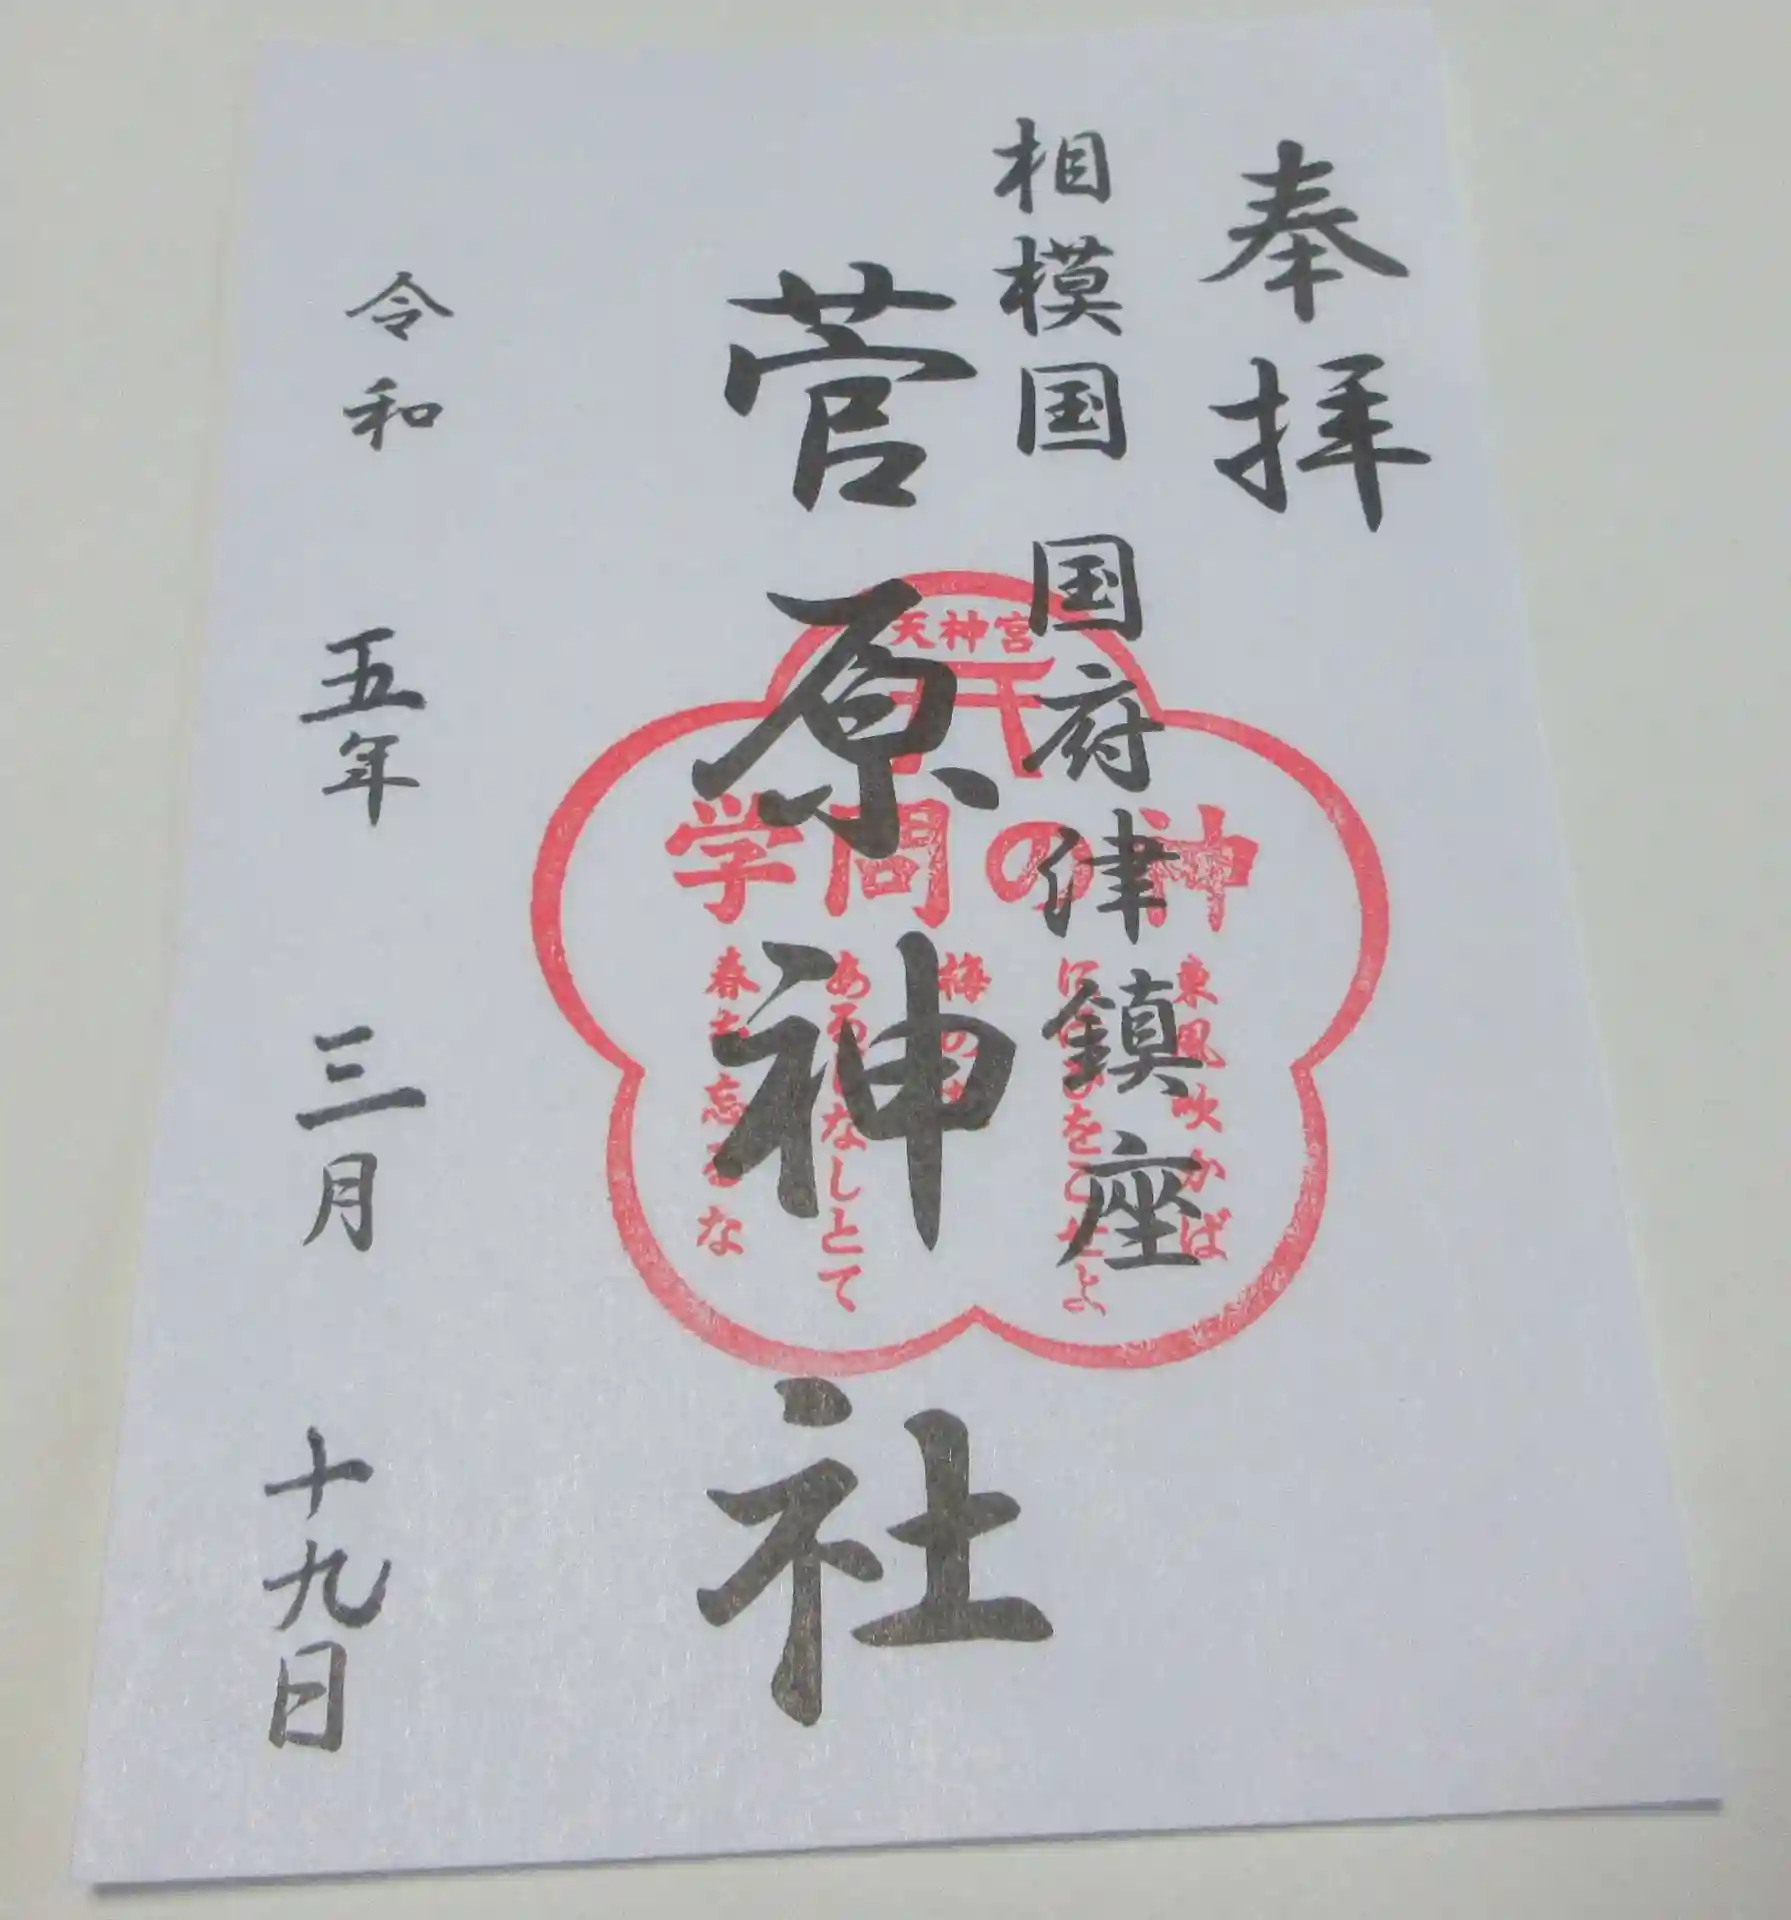 奉拝
相模国 国府津鎮座
菅原神社
令和 五年 三月 十九日
天神宮
学問の神
東風吹かば
にほひをこせよ
梅の
あるじなしとて
春な忘るな